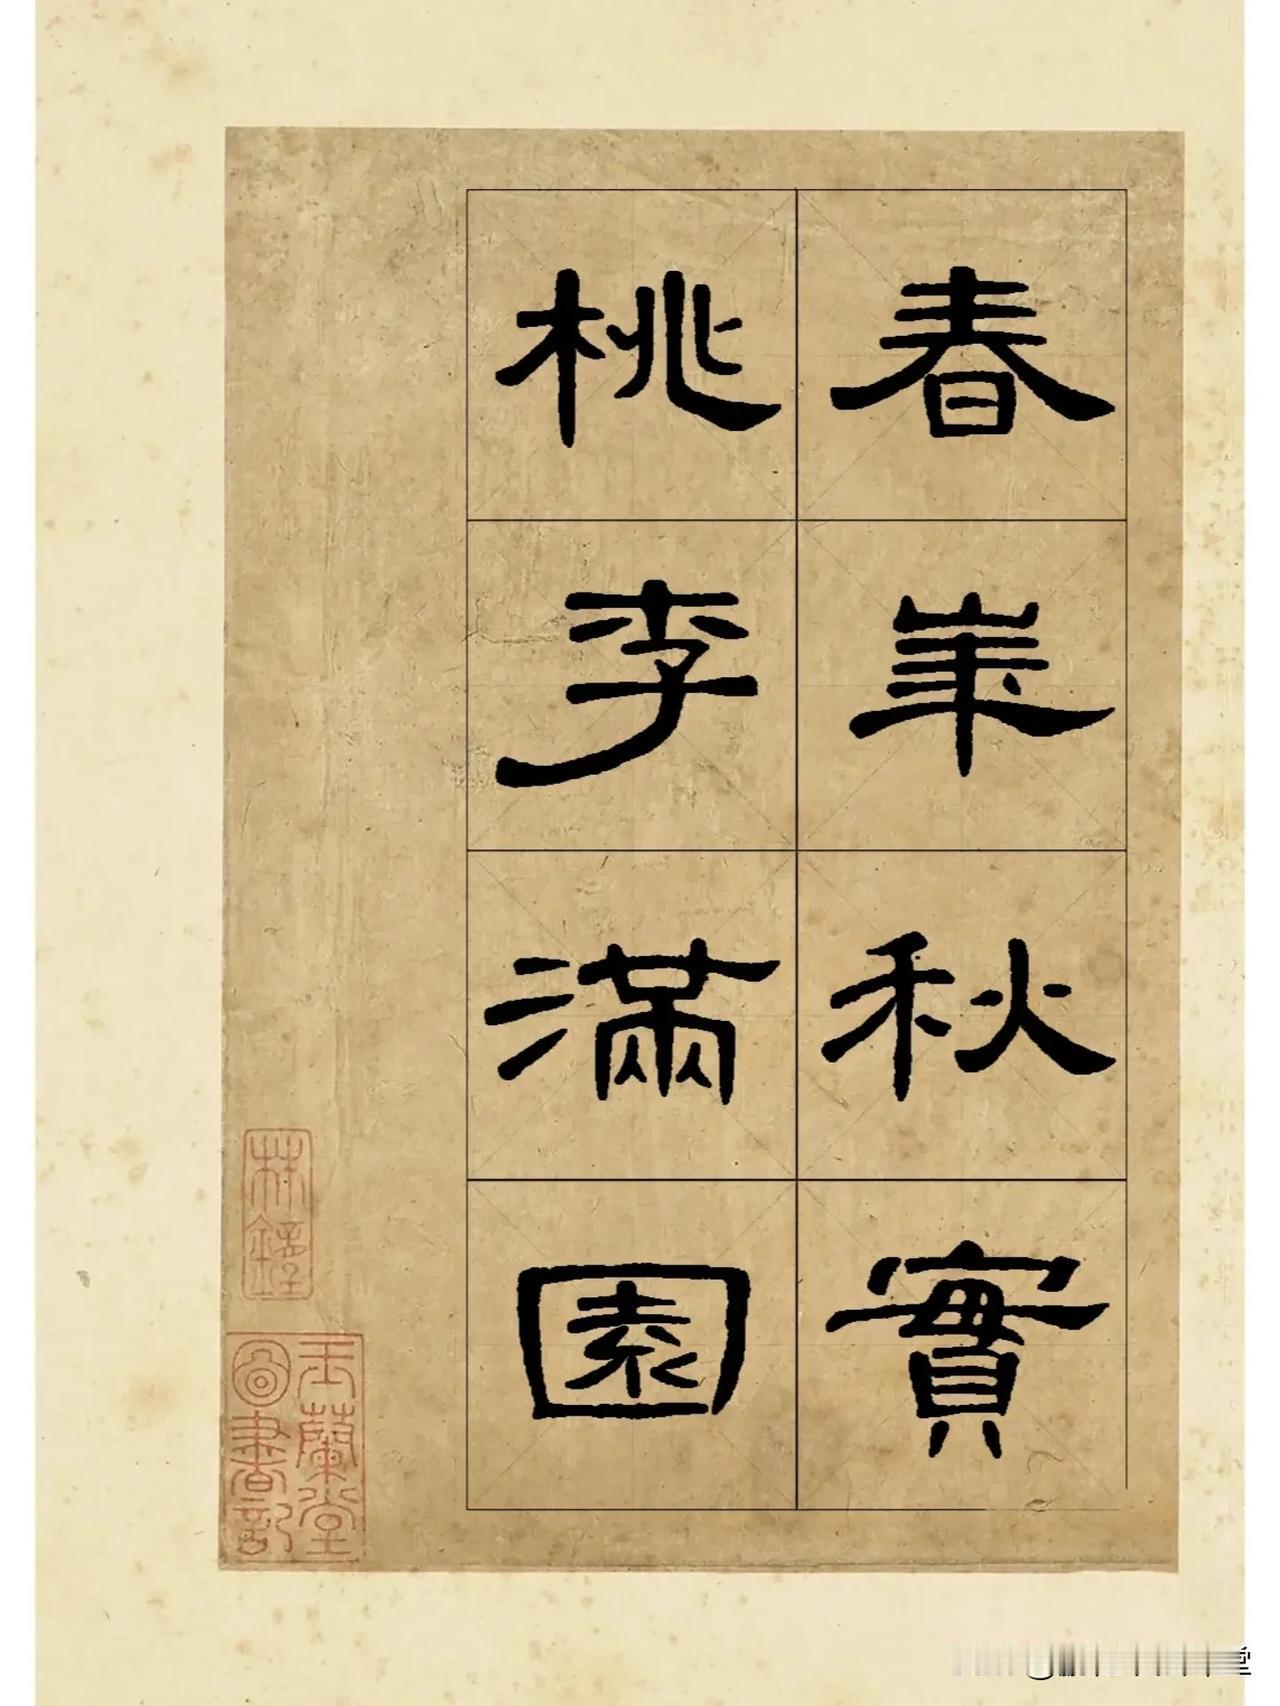 春華秋實
桃李滿園
玉蘭堂
圖書記